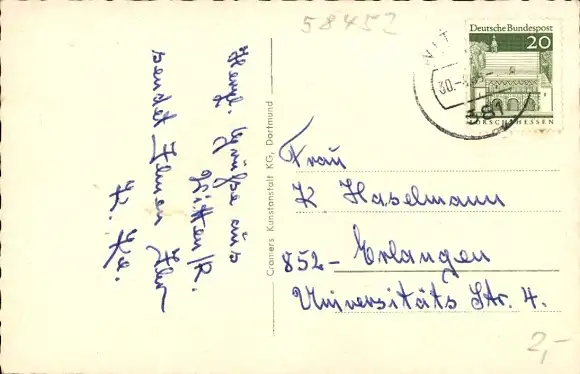 58452
Herzl. Grüße aus
Witten/R.
sendet Ihnen Ihr
Cramers Kunstanstalt KG, Dortmund
Deutsche Bundespost
20
LORSCH HESSEN
30.
581
Frau
K Haselmann
852- Erlangen
Universitäts Str. 4.
2,-